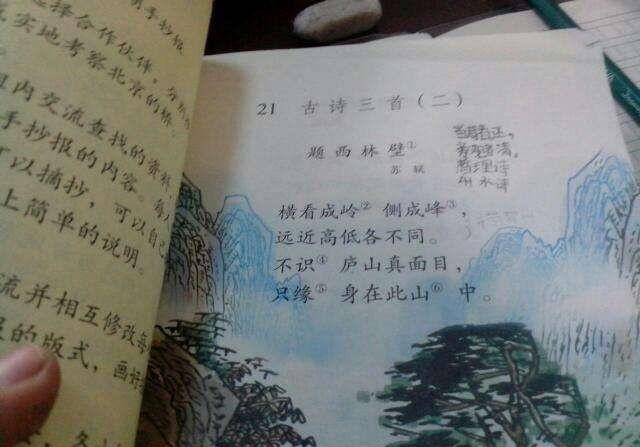 手抄报
选择合作伙伴，分
实地考察北京的桥。
内交流查找的资料
手抄报的内容。每
可以摘抄，可以自己
上简单的说明。
流并相互修改每
的版式，画好
21 古诗三首（二）
题西林壁①
苏轼
哲理诗
山水诗
横看成岭②侧成峰③，
远近高低各不同。
不识④庐山真面目，
只缘⑤身在此山⑥中。